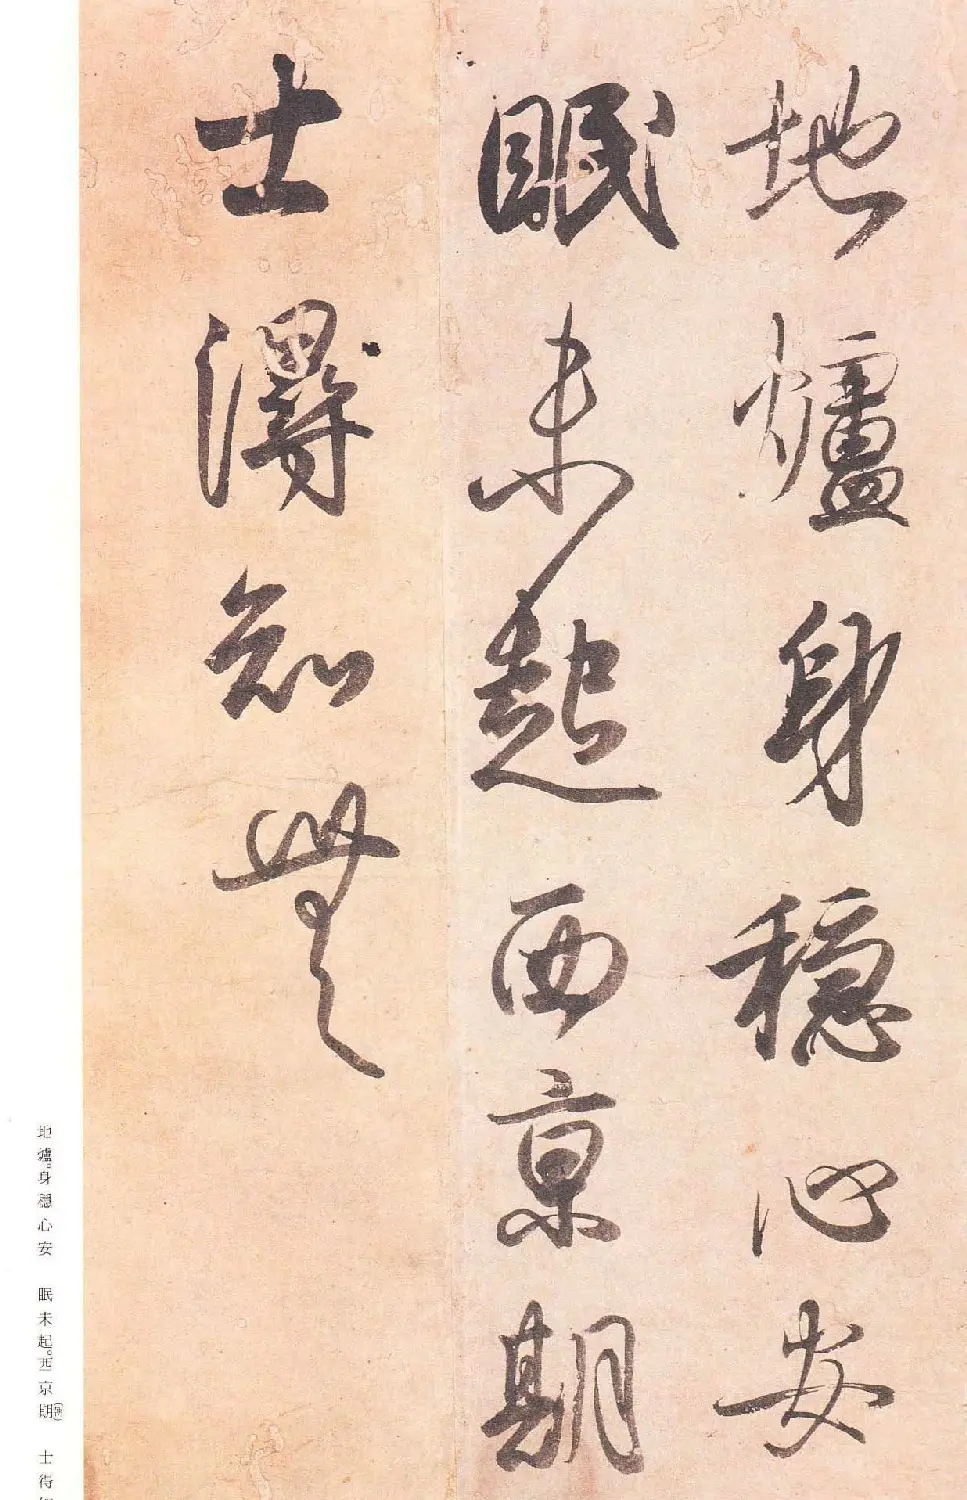 地爐身穩心安
眠未起西京期
士得知無
地爐。身穩心安　眠未起。西京期　士得